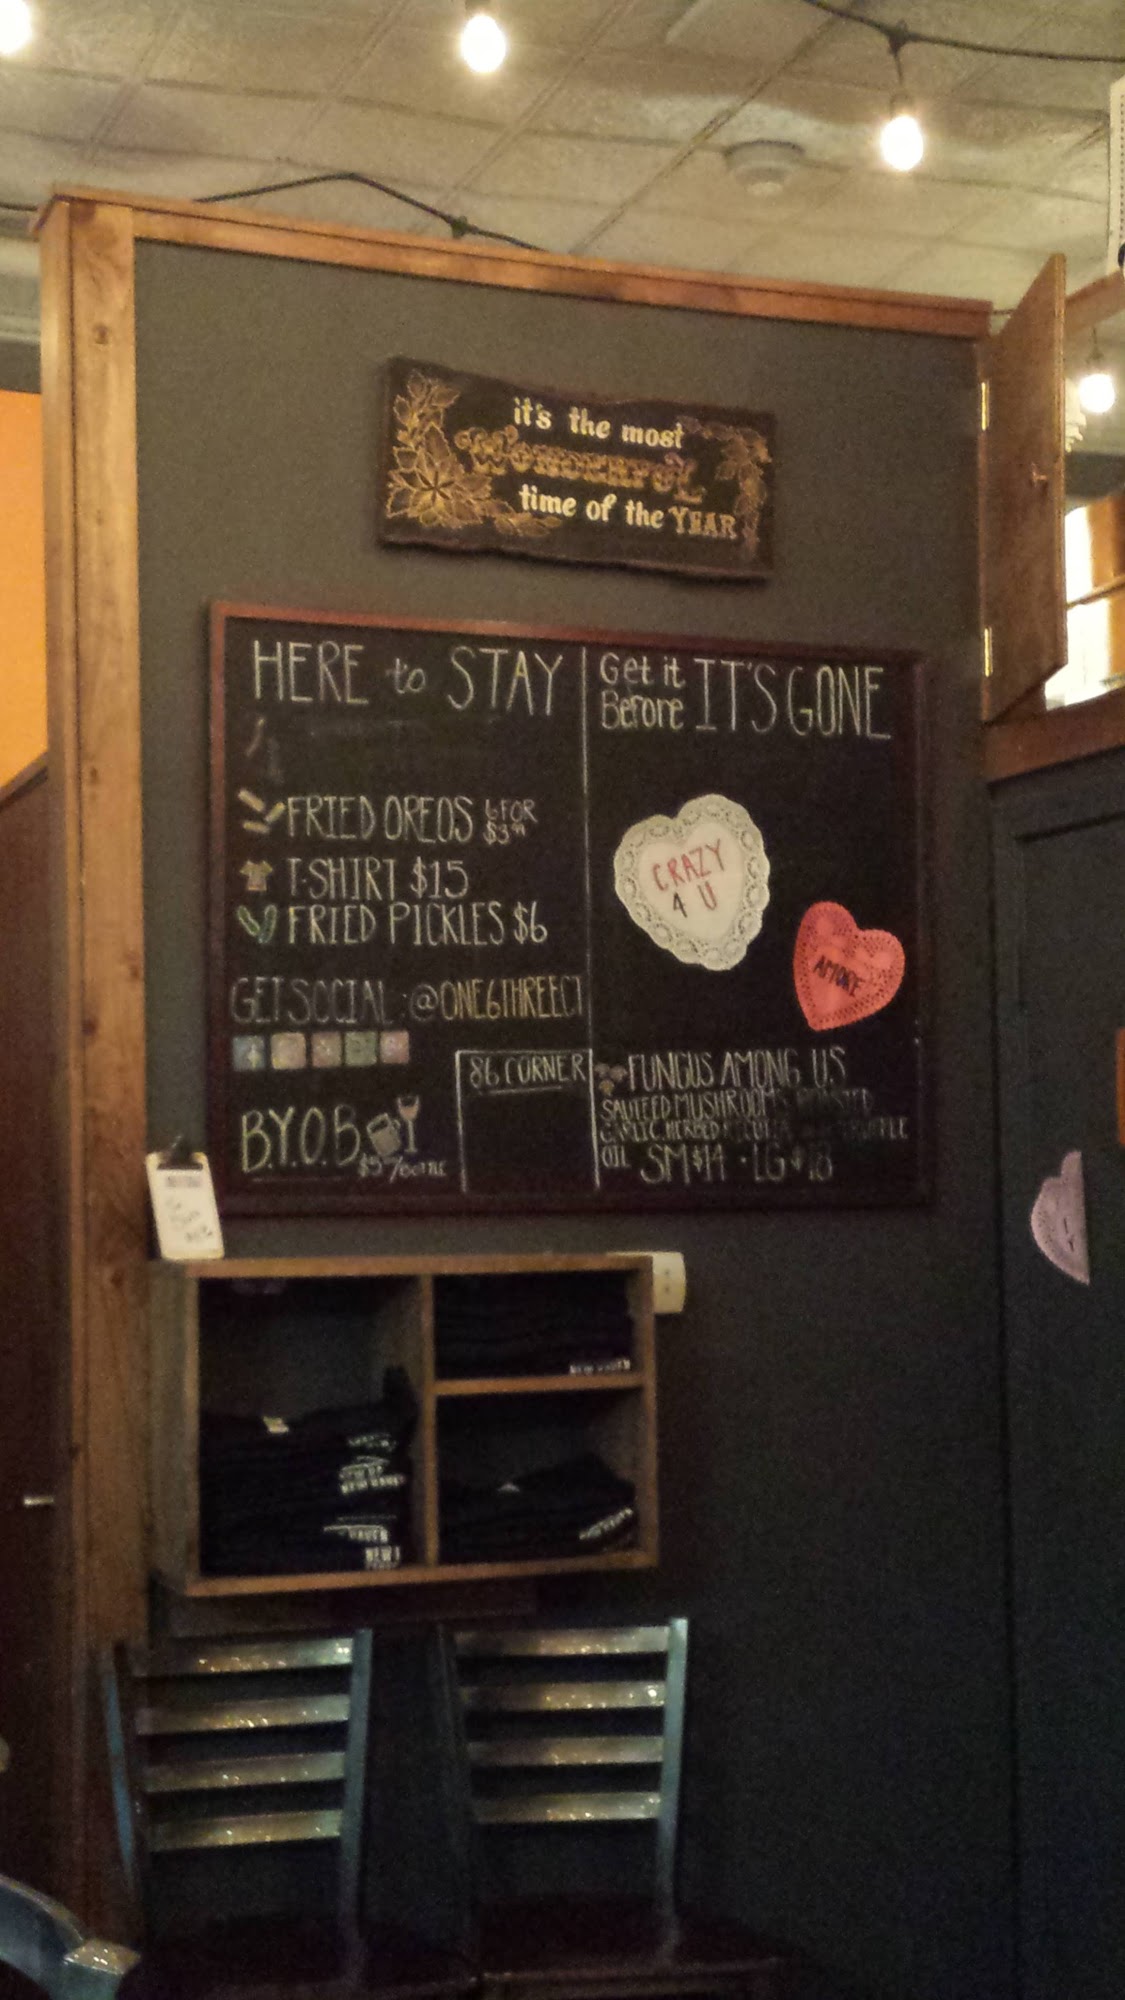 it's the most
WONDERFUL
time of the YEAR
HERE to STAY
FRIED OREOS 6 FOR $3.99
T-SHIRT $15
FRIED PICKLES $6
GET SOCIAL: @ONE6THREECT
B.Y.O.B $5/BOTTLE
86 CORNER
Get it Before IT'S GONE
CRAZY
4 U
AMORE
FUNGUS AMONG US
SAUTEED MUSHROOMS, ROASTED
GARLIC, HERBED RICOTTA, TRUFFLE
OIL SM $14 · LG $18
NEW HAVEN
NEW HAVEN
HAVEN
NEW